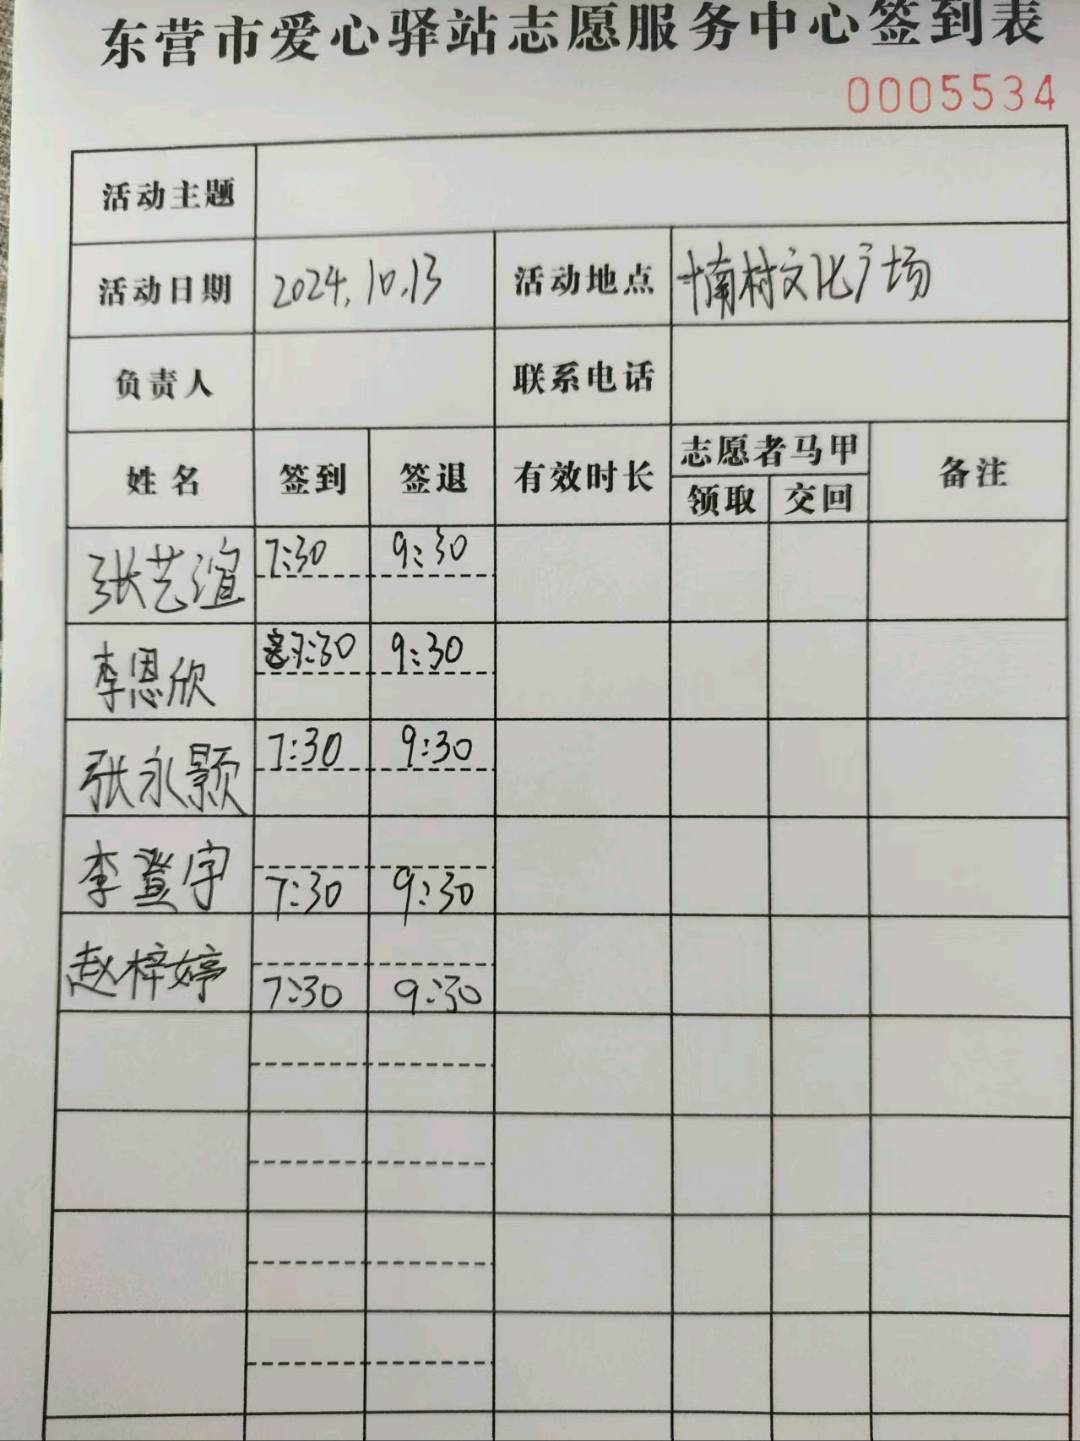 东营市爱心驿站志愿服务中心签到表
0005534
活动主题
活动日期 2024.10.13 活动地点 十南村文化广场
负责人 联系电话
姓名 签到 签退 有效时长 志愿者马甲 备注
领取 交回
张艺谊 7:30 9:30
李恩欣 7:30 9:30
张永颢 7:30 9:30
李登宇 7:30 9:30
赵梓婷 7:30 9:30